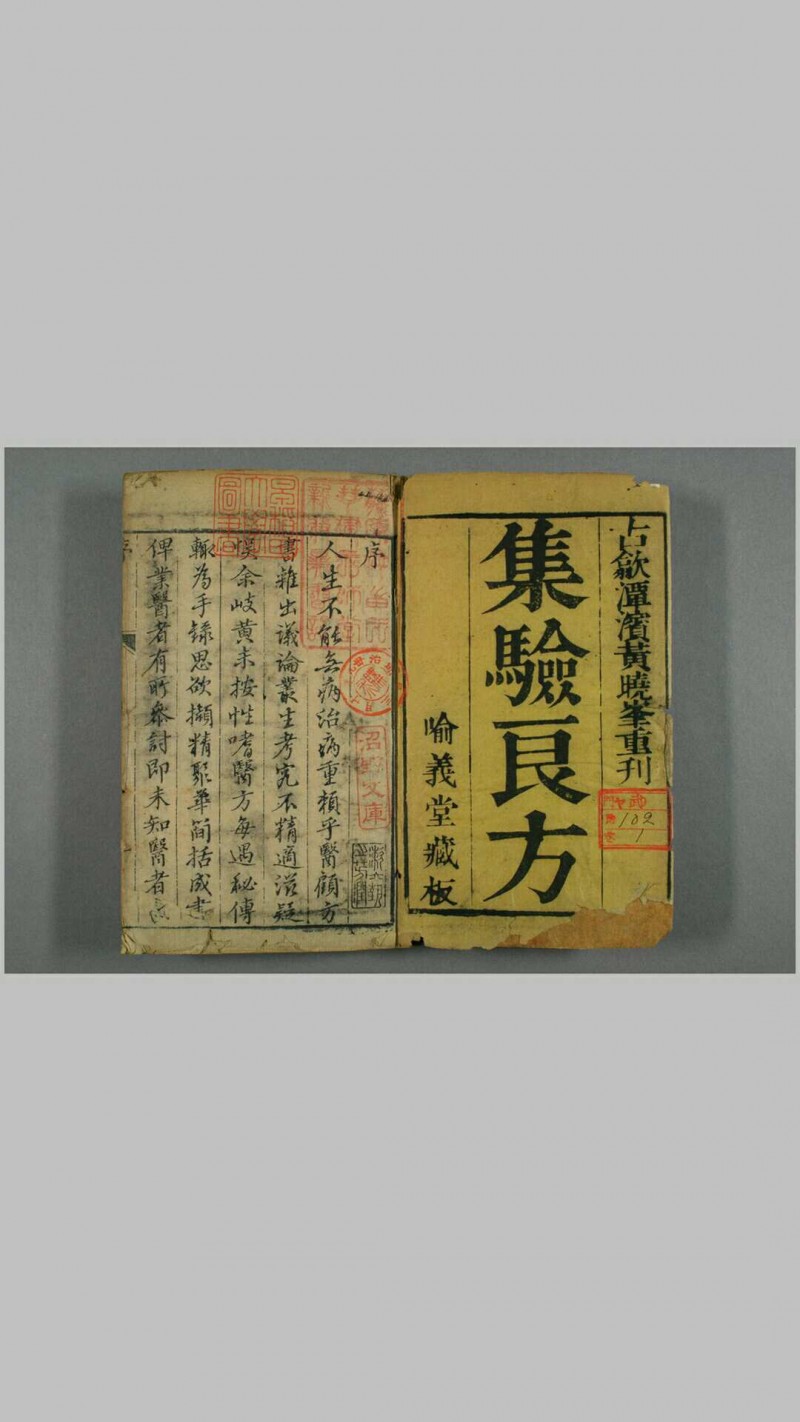 古歙潭濱黃曉峯重刊
集驗良方
喻義堂藏板
102
1
序
人生不能無病治病重頼乎醫顧方
書雜出議論叢生考究不精適滋疑
悞余岐黃未按性嗜醫方每遇秘傳
輙為手錄思欲擷精聚華簡括成書
俾業醫者有所叅討即未知醫者
沼野文庫